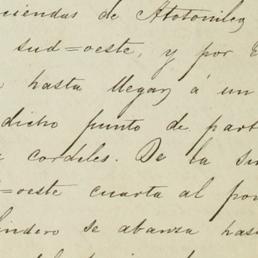 ciendas de Atotonilco
sud=oeste, y por
hasta llegar á un
dicho punto de part
cordeles. De la
=oeste cuarta al pon
lindero se abanza has